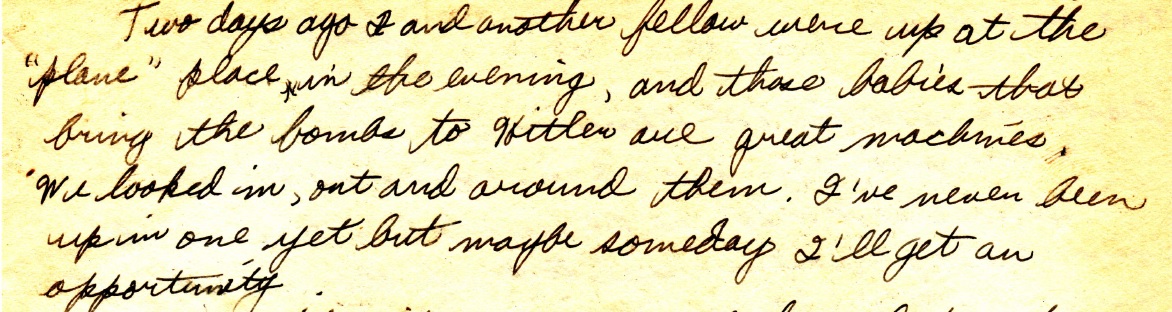 Two days ago I and another fellow were up at the
"plane" place, in the evening, and those babies that
bring the bombs to Hitler are great machines.
We looked in, out and around them. I've never been
up in one yet but maybe someday I'll get an
opportunity.